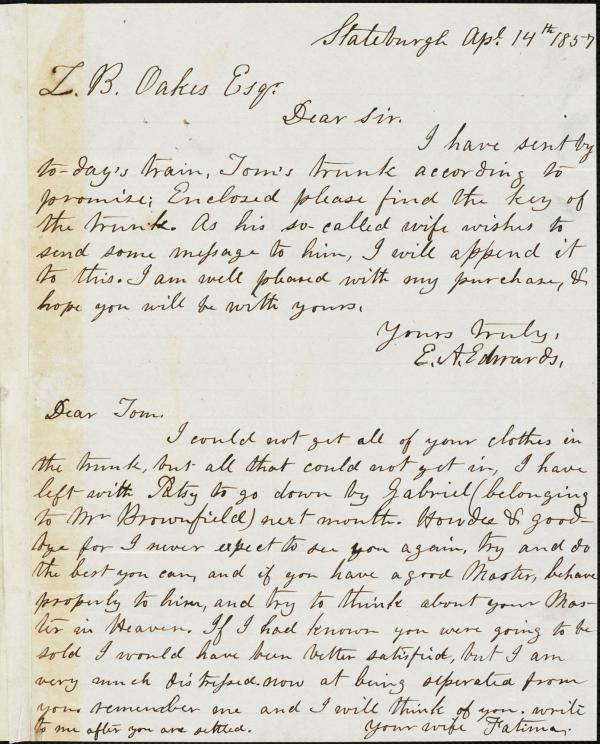 Stateburgh Apl. 14th 1857
Z. B. Oakes Esqr.
Dear Sir.
I have sent by
to-day's train, Tom's trunk according to
promise; Enclosed please find the key of
the trunk. As his so-called wife wishes to
send some message to him, I will append it
to this. I am well pleased with my purchase, &
hope you will be with yours.
Yours truly,
E. A. Edwards,
Dear Tom.
I could not get all of your clothes in
the trunk, but all that could not get in, I have
left with Patsy to go down by Gabriel (belonging
to Mr Brownfield) next month. Howdee & good-
bye for I never expect to see you again, try and do
the best you can, and if you have a good Master, behave
properly to him, and try to think about your Mas-
ter in Heaven. If I had known you were going to be
sold I would have been better satisfied, but I am
very much distressed now at being seperated from
you. remember me and I will think of you. write
to me after you are settled. Your wife Fatima.